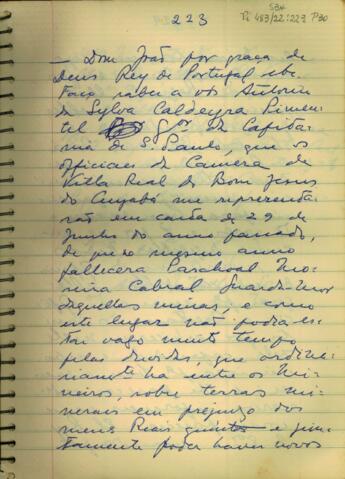 223
SBH
Pi 483/22:223 P30
— Dom João por graça de
Deus Rey de Portugal etc.
Faço saber a vós Antonio
da Sylva Caldeyra Pimen-
tel Gor da Capita-
nia de S. Paulo, que os
officiaes da Camera da
Villa Real do Bom Jesus
do Cuyabá me representa-
rão em carta de 29 de
Junho do anno passado,
de que no mesmo anno
fallecera Paschoal Mo-
reira Cabral Guarda-Mor
daquellas minas, e como
este lugar não podia es-
tar vago muito tempo
pelas duvidas, que ordina-
riamte ha entre os Mi-
neiros, sobre terras mi-
neraes em prejuizo dos
meus Reais quintos e jun-
tamente poder haver novos